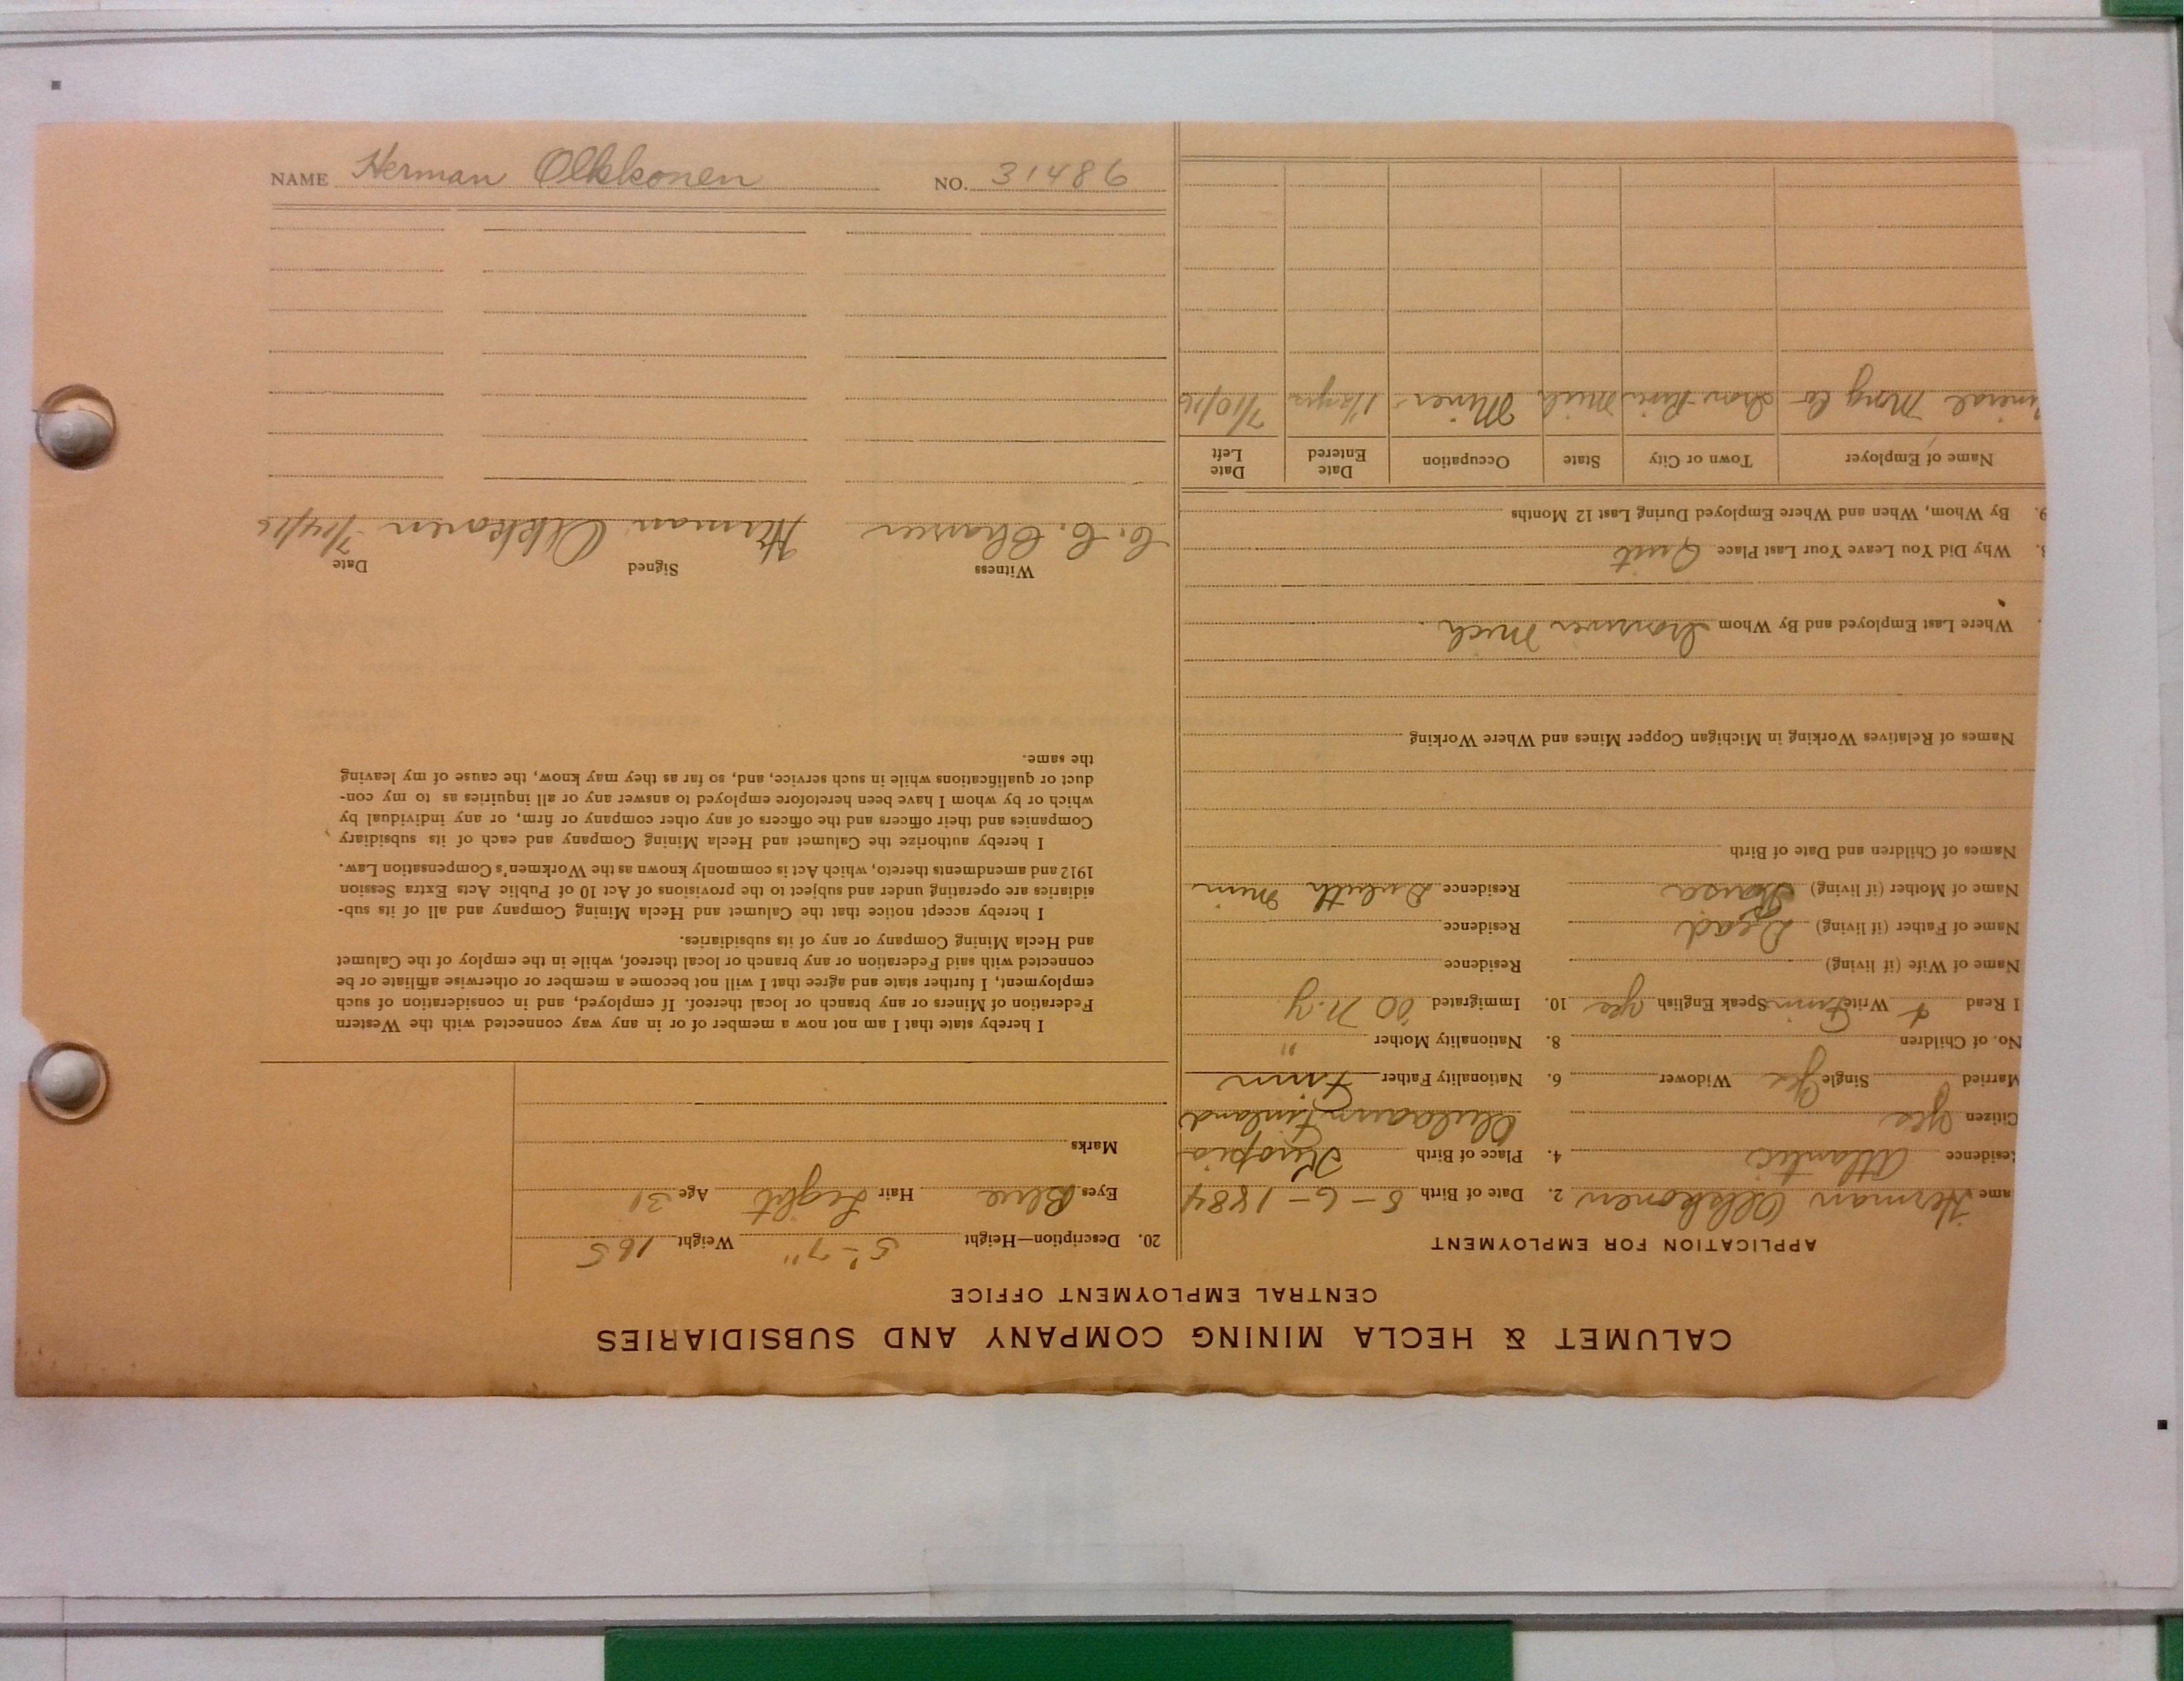 CALUMET & HECLA MINING COMPANY AND SUBSIDIARIES
CENTRAL EMPLOYMENT OFFICE
APPLICATION FOR EMPLOYMENT
ame Herman Olkkonen 2. Date of Birth 5-6-1884
esidence Atlantic 4. Place of Birth Kuopio
Citizen yes Finland
Married Single yes Widower 6. Nationality Father Finn
No. of Children 8. Nationality Mother "
I Read + Write Finn Speak English yes 10. Immigrated 00 N.Y
Name of Wife (if living) Residence
Name of Father (if living) Dead Residence
Name of Mother (if living) Residence Duluth Minn
Names of Children and Date of Birth
Names of Relatives Working in Michigan Copper Mines and Where Working
Where Last Employed and By Whom Ironriver Mich
Why Did You Leave Your Last Place Quit
9. By Whom, When and Where Employed During Last 12 Months
Name of Employer Town or City State Occupation Date Entered Date Left
Mineral Mong Co Iron River Mich Miner 7/10/16
20. Description—Height 5-7" Weight 165
Eyes Blue Hair Light Age 31
Marks
I hereby state that I am not now a member of or in any way connected with the Western
Federation of Miners or any branch or local thereof. If employed, and in consideration of such
employment, I further state and agree that I will not become a member or otherwise affiliate or be
connected with said Federation or any branch or local thereof, while in the employ of the Calumet
and Hecla Mining Company or any of its subsidiaries.
I hereby accept notice that the Calumet and Hecla Mining Company and all of its sub-
sidiaries are operating under and subject to the provisions of Act 10 of Public Acts Extra Session
1912 and amendments thereto, which Act is commonly known as the Workmen's Compensation Law.
I hereby authorize the Calumet and Hecla Mining Company and each of its subsidiary
Companies and their officers and the officers of any other company or firm, or any individual by
which or by whom I have been heretofore employed to answer any or all inquiries as to my con-
duct or qualifications while in such service, and, so far as they may know, the cause of my leaving
the same.
Witness Signed Date
C. C. Herman Olkkonen 7/14/16
NAME Herman Olkkonen NO. 31486